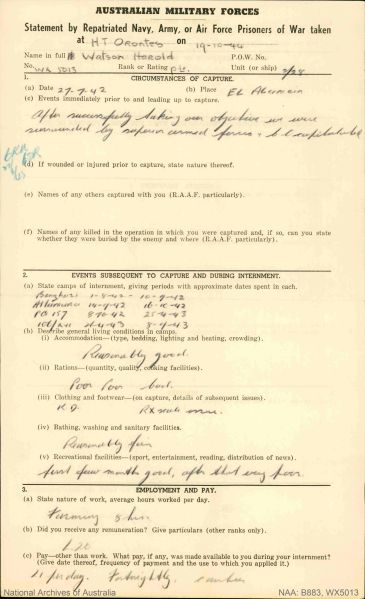 AUSTRALIAN MILITARY FORCES
Statement by Repatriated Navy, Army, or Air Force Prisoners of War taken
at HT Orontes on 19-10-44
Name in full Watson Harold P.O.W. No.
No. WX 5013 Rank or Rating Pte. Unit (or ship) 2/28
1. CIRCUMSTANCES OF CAPTURE.
(a) Date 27-7-42 (b) Place EL Alamein
(c) Events immediately prior to and leading up to capture.
After successfully taking our objective we were
surrounded by superior armed forces &
(d) If wounded or injured prior to capture, state nature thereof.
(e) Names of any others captured with you (R.A.A.F. particularly).
(f) Names of any killed in the operation in which you were captured and, if so, can you state
whether they were buried by the enemy and where (R.A.A.F. particularly).
2. EVENTS SUBSEQUENT TO CAPTURE AND DURING INTERNMENT.
(a) State camps of internment, giving periods with approximate dates spent in each.
Benghazi
PG 57
(b) Describe general living conditions in camps.
(i) Accommodation—(type, bedding, lighting and heating, crowding).
Reasonably good.
(ii) Rations—(quantity, quality, cooking facilities).
Poor Poor bad.
(iii) Clothing and footwear—(on capture, details of subsequent issues).
K.D. issue.
(iv) Bathing, washing and sanitary facilities.
Reasonably fair
(v) Recreational facilities—(sport, entertainment, reading, distribution of news).
first few months good, after that very poor.
3. EMPLOYMENT AND PAY.
(a) State nature of work, average hours worked per day.
Farming 8 hrs
(b) Did you receive any remuneration? Give particulars (other ranks only).
(c) Pay—other than work. What pay, if any, was made available to you during your internment?
(Give date thereof, frequency of payment and the use to which you applied it.)
per day. Fortnightly. canteen
National Archives of Australia
NAA: B883, WX5013